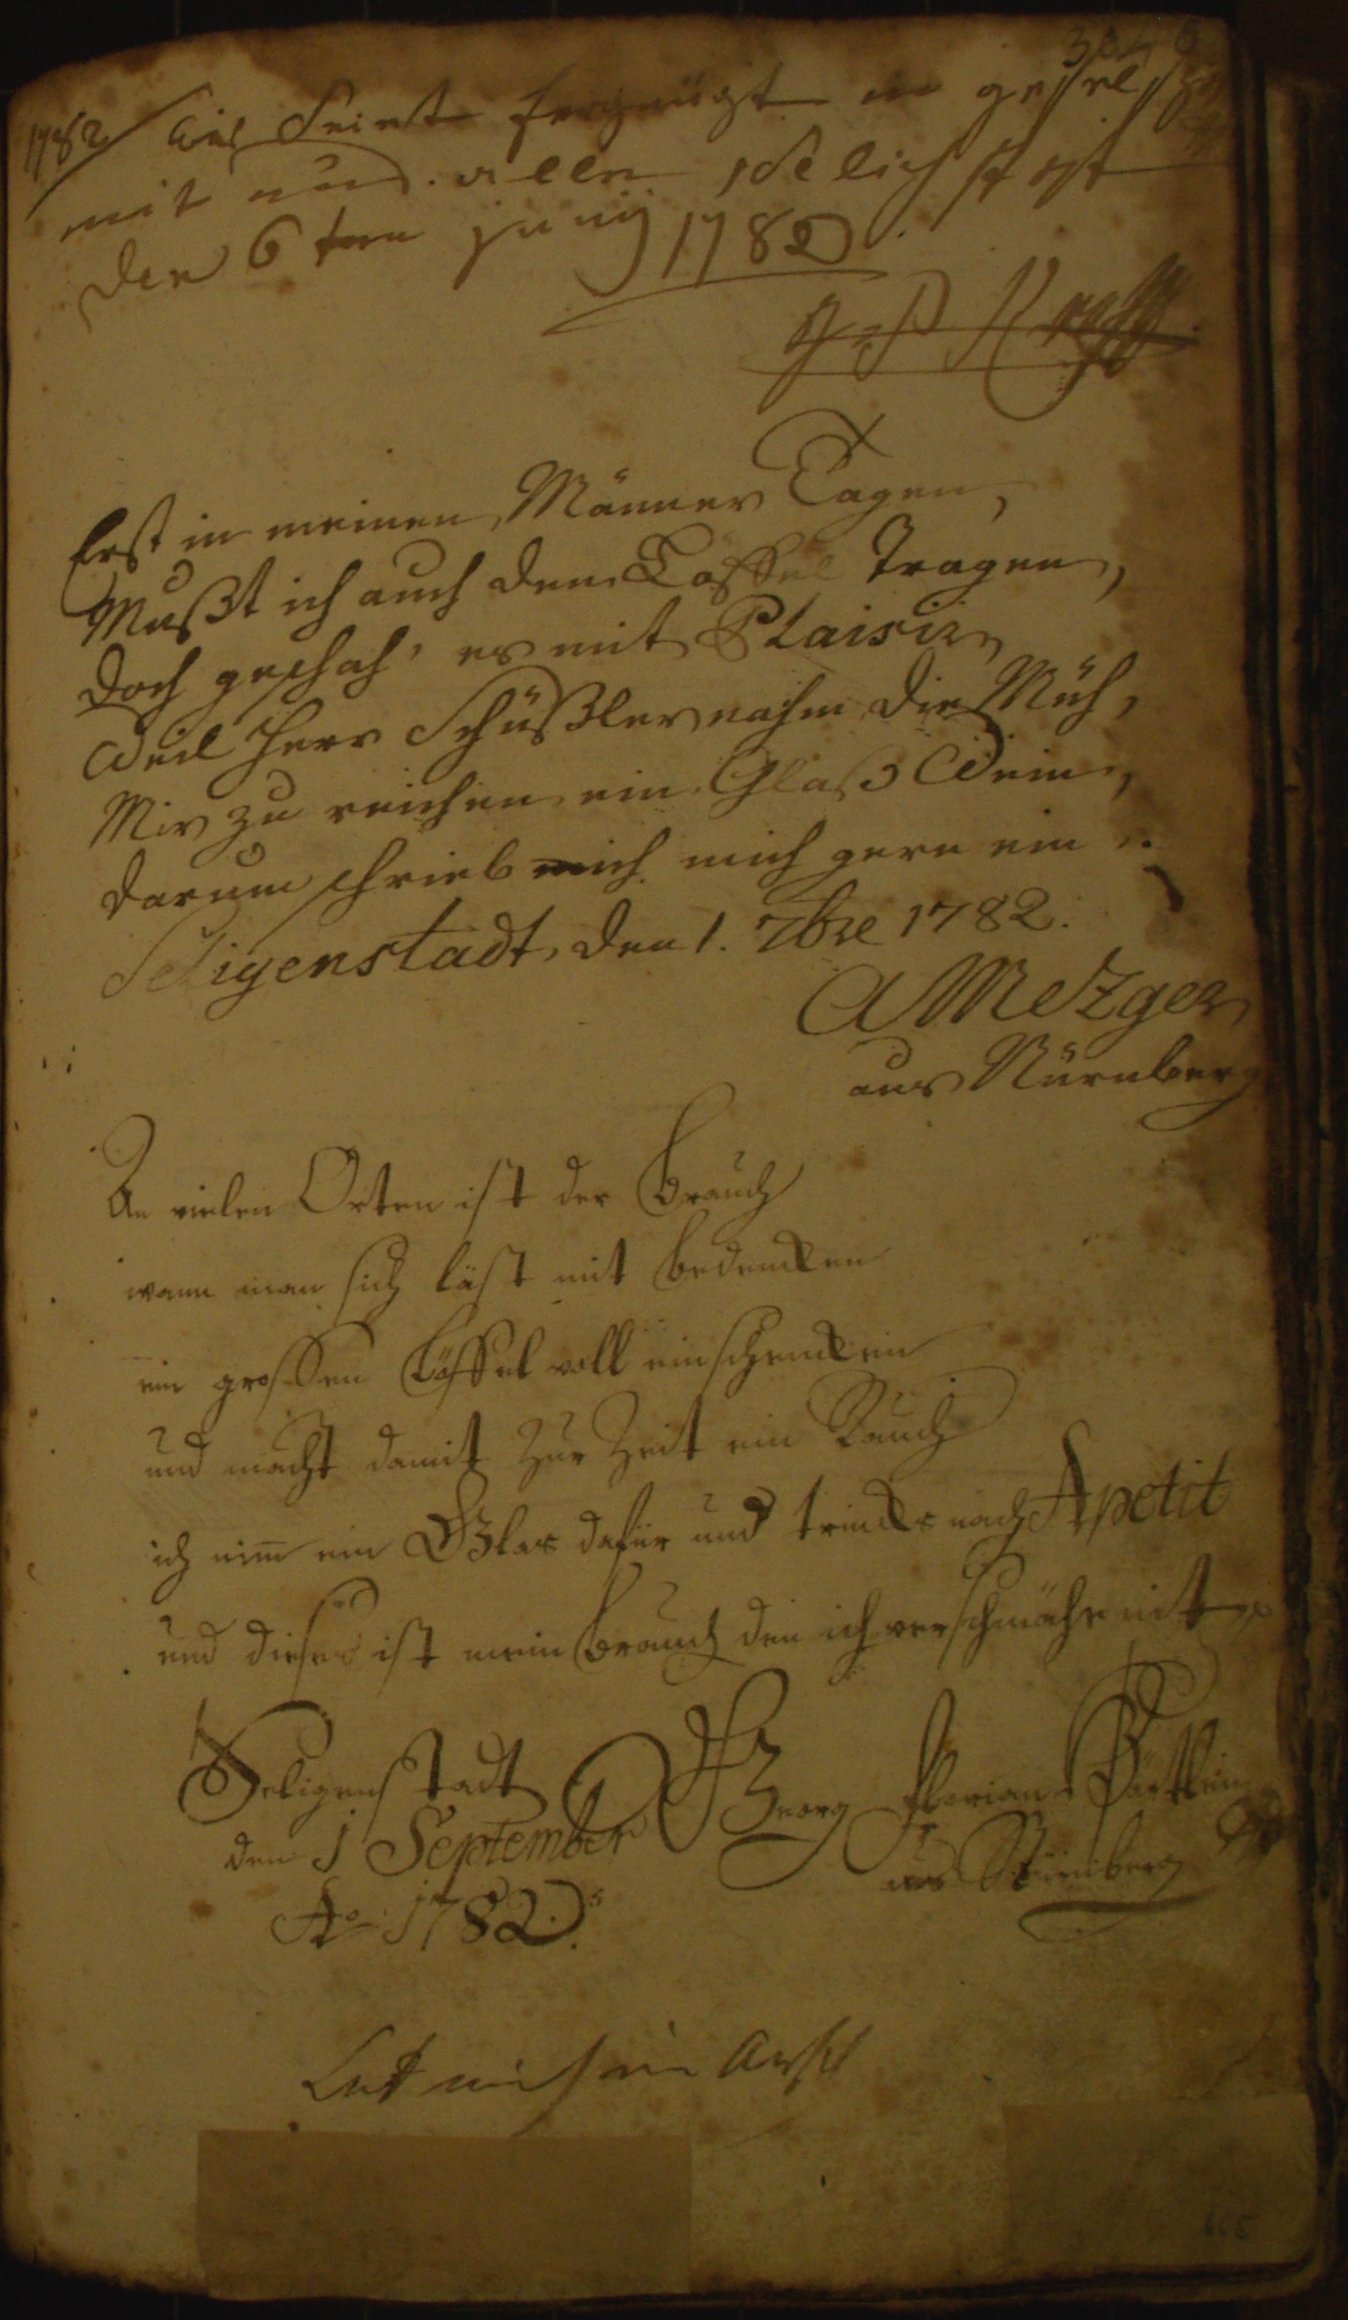 1782
Wir Seint fergnügt in gesel
mit und allen
den 6 ten junij 1782
Erst in meinen Männer Tagen,
Mußt ich auch den Löffel Tragen,
Doch geschah' es mit Plaisir,
Weil Herr Schüßler nahm die Müh,
Mir zu reichen ein Glaß Wein,
Darum schrieb mich mich gern ein.
Seligenstadt, den 1. 7bre 1782.
A Metzger
aus Nürnberg
An vielen Orten ist der Brauch
wann man sich läst mit bedencken
ein grossen Löffel voll einschencken
und macht damit zur Zeit ein Rauch
ich nim̅ ein Glas dafür und trincks nach Apetit
und dieses ist mein brauch den ich verschmähe nit
Seligenstadt Georg Florian
den 1 September aus Nürnberg
Ao 1782.